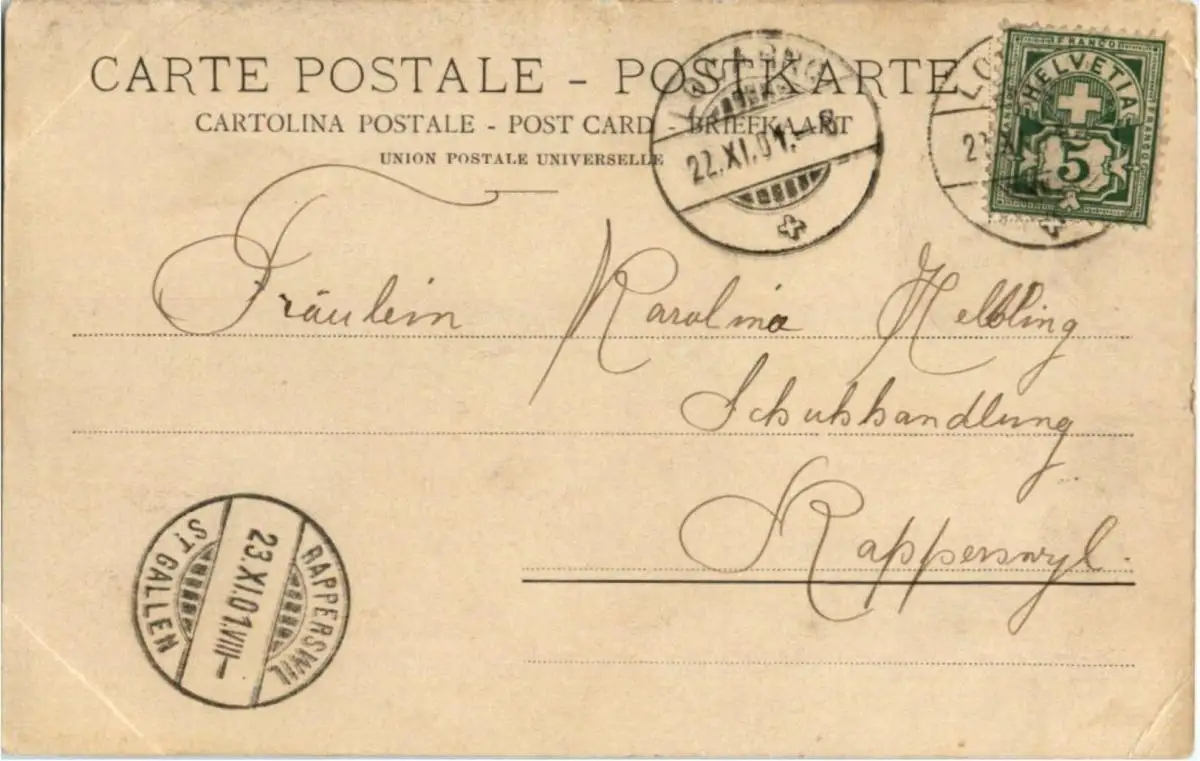 CARTE POSTALE - POSTKARTE
CARTOLINA POSTALE - POST CARD - BRIEFKAART
UNION POSTALE UNIVERSELLE
LOCARNO
22.XI.01.–8
LO
FRANCO
HELVETIA
5
Fräulein Karolina Helbling
Schuhhandlung
Rapperswyl.
RAPPERSWIL
23.XI.01.VIII–
ST. GALLEN